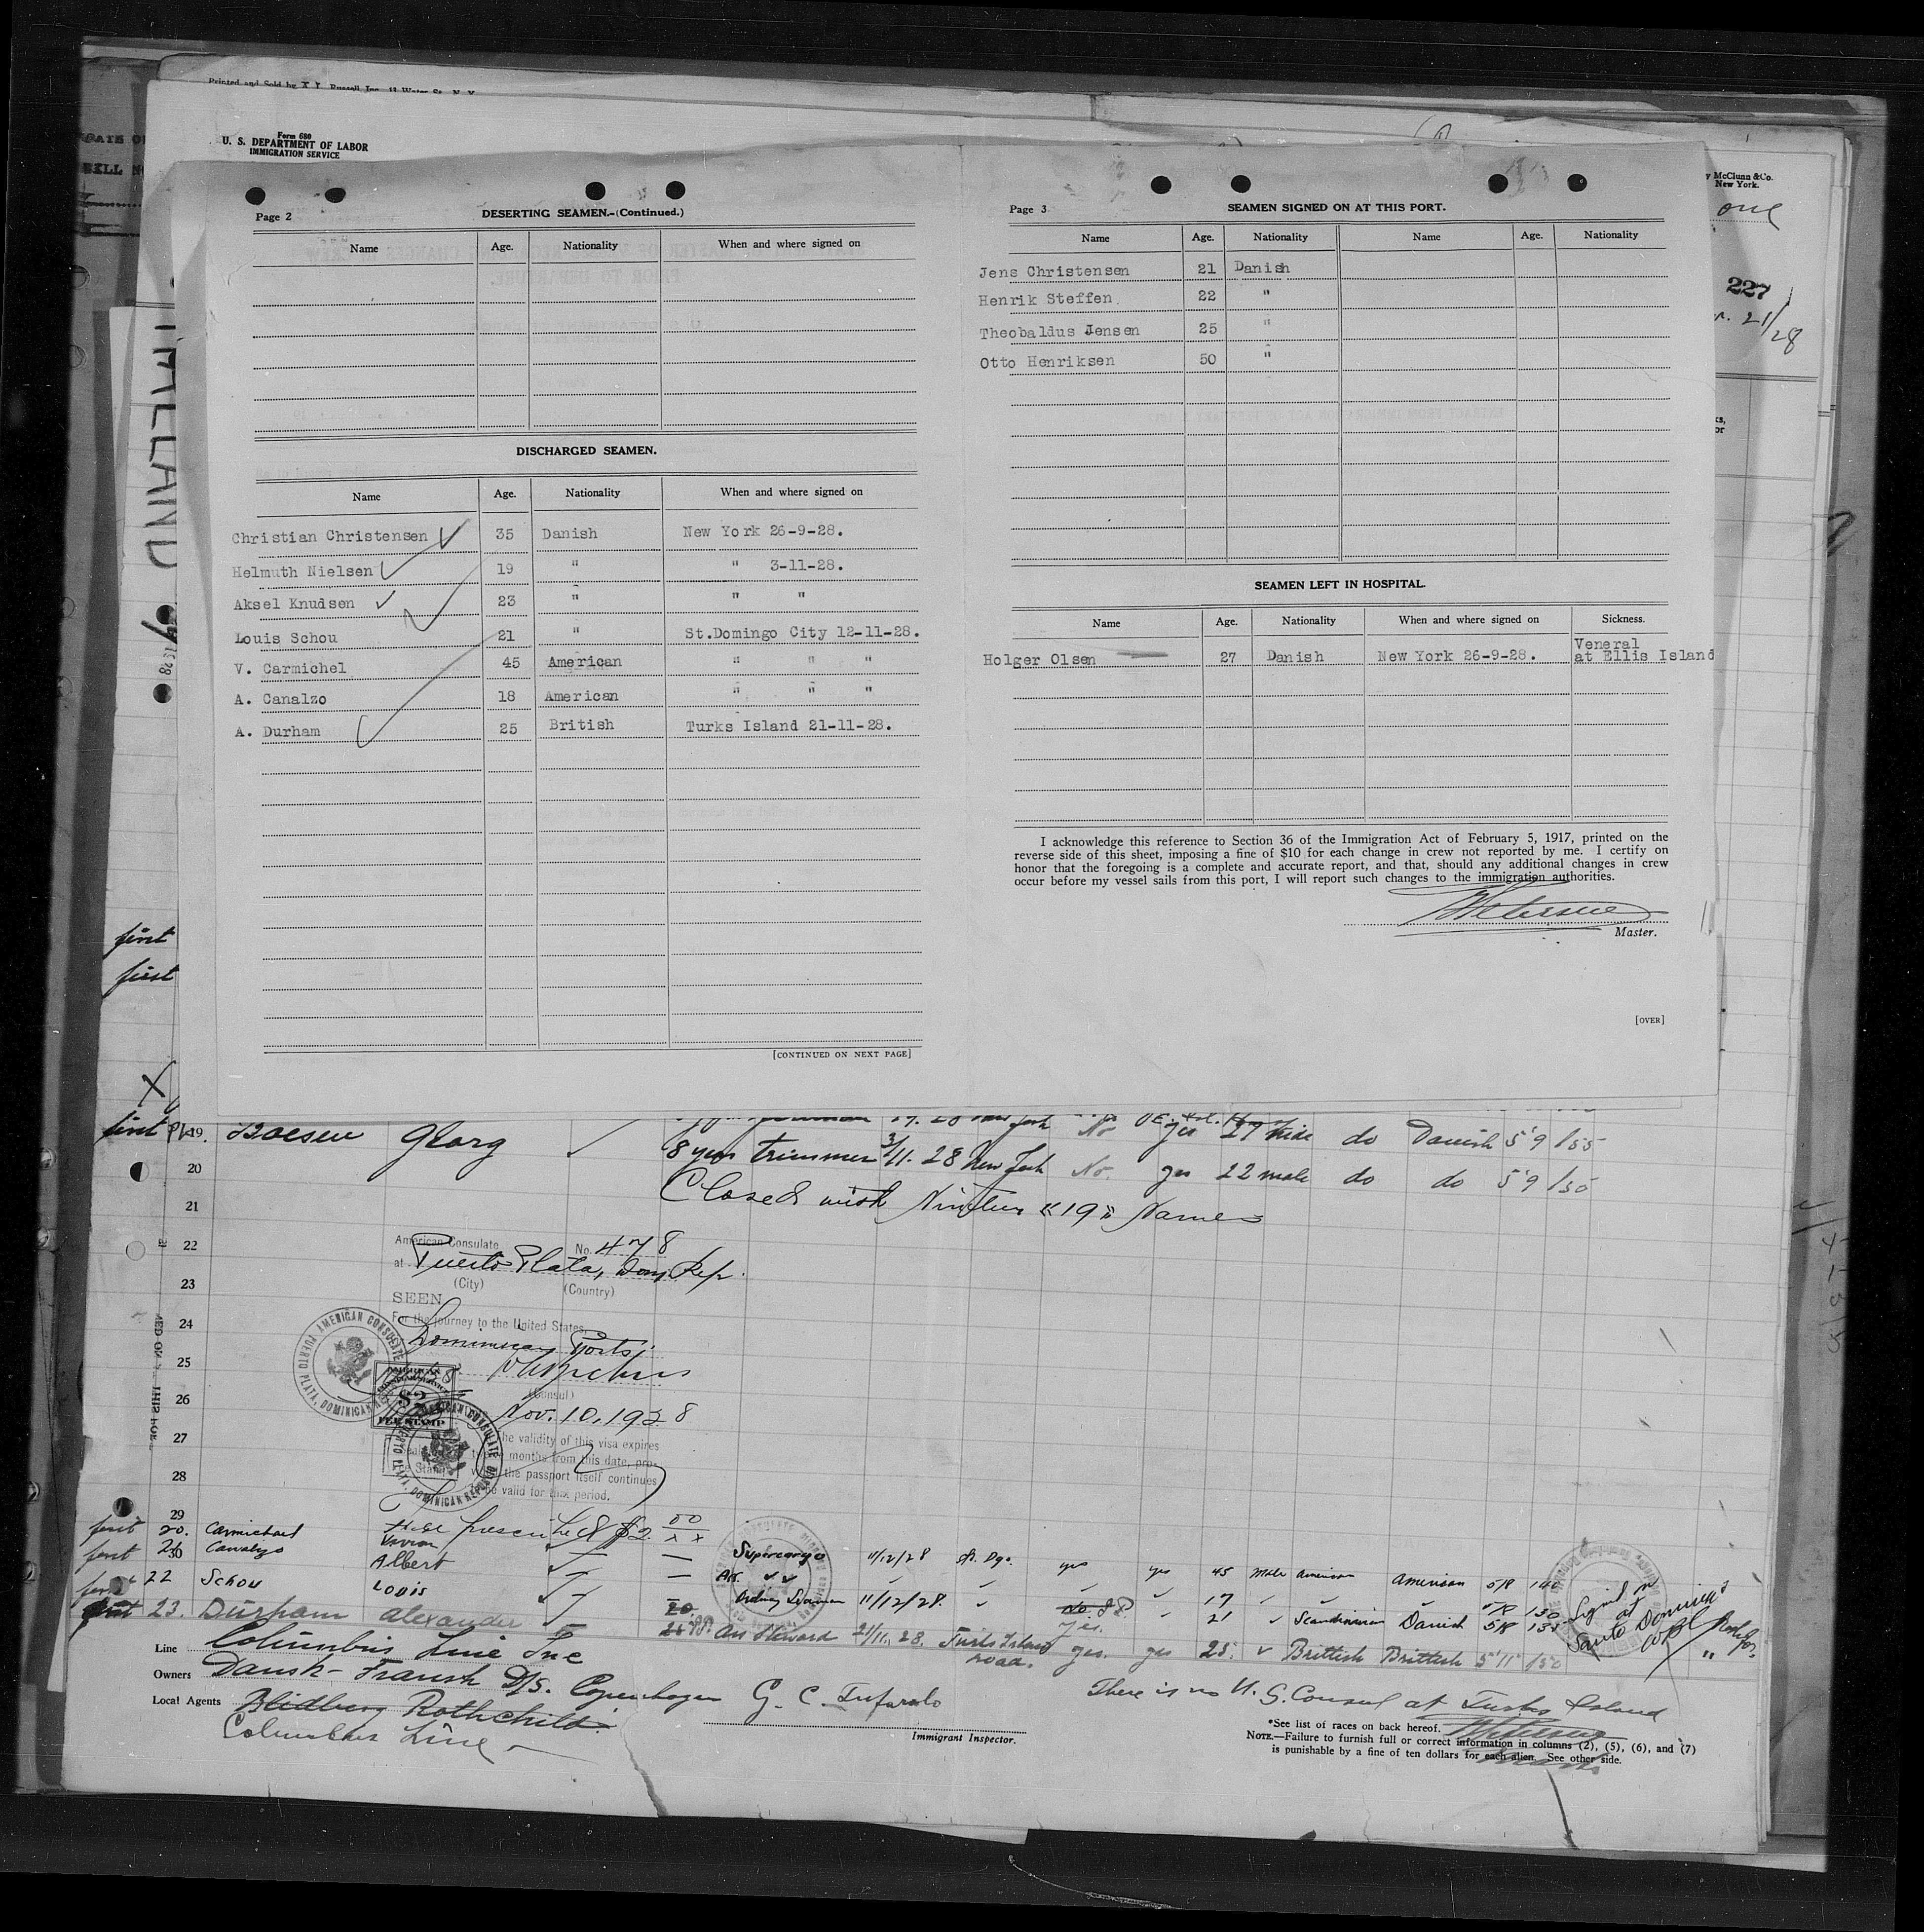 Printed and Sold by
Form 680
U. S. DEPARTMENT OF LABOR
IMMIGRATION SERVICE
McClunn & Co.
New York.
one
227
21/28
Page 2
DESERTING SEAMEN.-(Continued.)
Name Age. Nationality When and where signed on
DISCHARGED SEAMEN.
Name Age. Nationality When and where signed on
Christian Christensen 35 Danish New York 26-9-28.
Helmuth Nielsen 19 " " 3-11-28.
Aksel Knudsen 23 " " "
Louis Schou 21 " St.Domingo City 12-11-28.
V. Carmichel 45 American " " "
A. Canalzo 18 American " " "
A. Durham 25 British Turks Island 21-11-28.
[CONTINUED ON NEXT PAGE]
Page 3
SEAMEN SIGNED ON AT THIS PORT.
Name Age. Nationality Name Age. Nationality
Jens Christensen 21 Danish
Henrik Steffen 22 "
Theobaldus Jensen 25 "
Otto Henriksen 50 "
SEAMEN LEFT IN HOSPITAL.
Name Age. Nationality When and where signed on Sickness.
Holger Olsen 27 Danish New York 26-9-28. Veneral
at Ellis Island
I acknowledge this reference to Section 36 of the Immigration Act of February 5, 1917, printed on the
reverse side of this sheet, imposing a fine of $10 for each change in crew not reported by me. I certify on
honor that the foregoing is a complete and accurate report, and that, should any additional changes in crew
occur before my vessel sails from this port, I will report such changes to the immigration authorities.
Master.
[OVER]
first
first
X
first 19. Boesen Georg yes 27 male do Danish 5'9 155
20 8 years trimmer 3/11.28 New York No. yes 22 male do do 5'9 150
21 Closed with Nineteen "19" Names
22 American Consulate No. 478
at Puerto Plata, Dom. Rep.
23 (City) (Country)
SEEN
24 For the journey to the United States
Dominican Ports
25
(Consul)
26 Nov. 10, 1928
27 The validity of this visa expires
months from this date, pro-
28 the passport itself continues
valid for this period.
AMERICAN CONSULATE PUERTO PLATA, DOMINICAN REPUBLIC
$2
FEE STAMP
29 Fee prescribed $2.00
30
first 20. Carmichael Vivian — Supercargo 11/12/28 St. Dgo. yes yes 45 male American American 5/8 140
first 21 Canalzo Albert — 17 5/8 130
first 22 Schou Louis Ordinary Seaman 11/12/28. 21 Scandinavian Danish 5/8 135
first 23. Durham Alexander Ass Steward 21/11. 28. Turks Island road. yes. yes 25. Brittish Brittish 5'11" 150
Signed on
at
Santo Domingo
Line Columbus Line Inc
Owners Dansk-Fransk D/S. Copenhagen
Local Agents Blidberg Rothchild
Columbus Line
Immigrant Inspector.
There is no U.S. Consul at Turks Island
*See list of races on back hereof.
NOTE.—Failure to furnish full or correct information in columns (2), (5), (6), and (7)
is punishable by a fine of ten dollars for each alien. See other side.